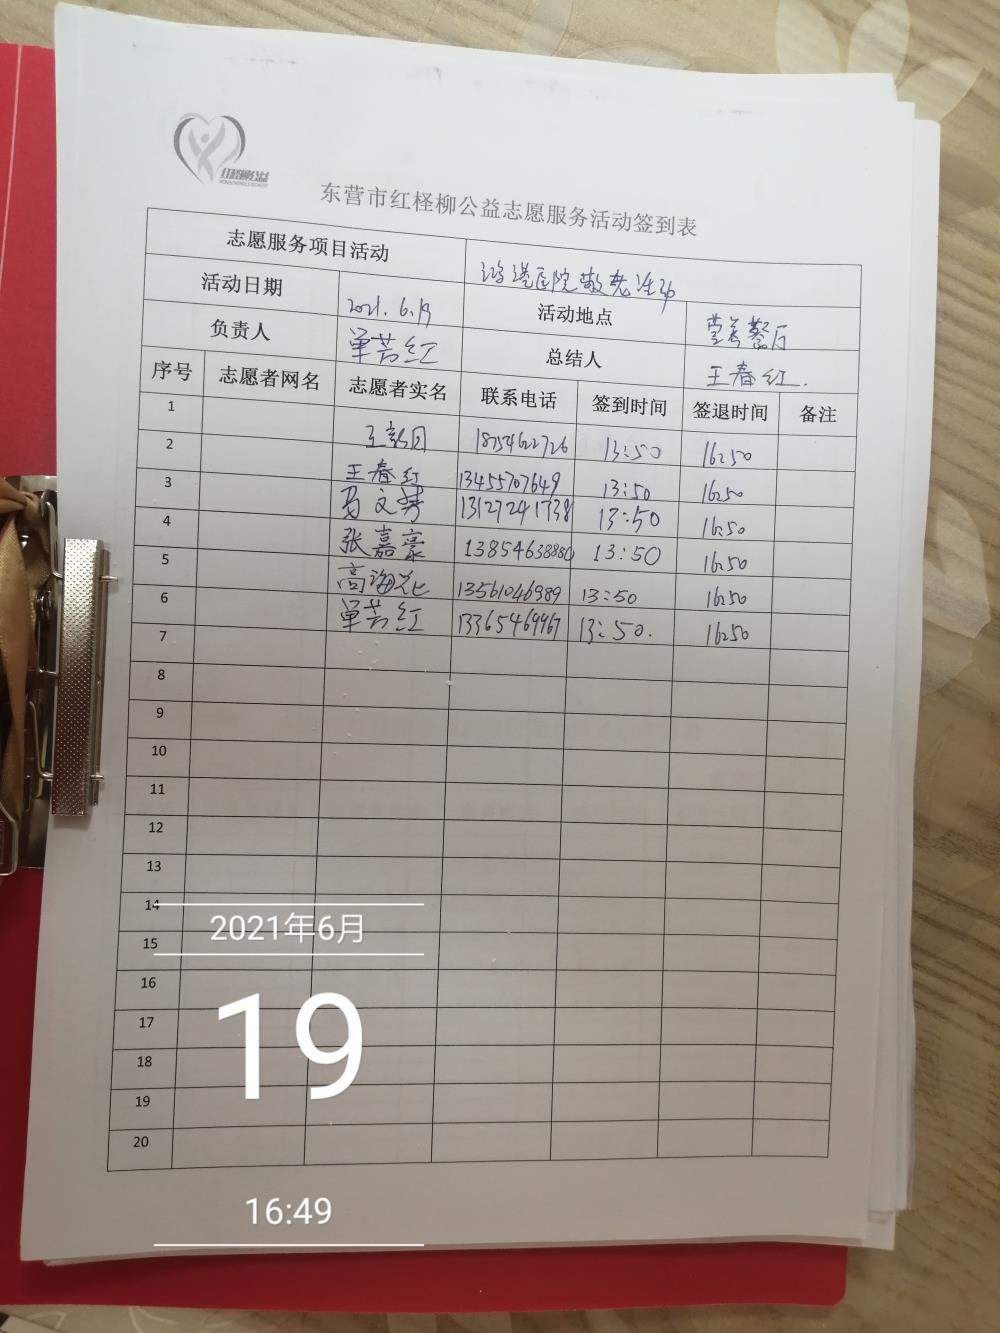 红柽柳公益
东营市红柽柳公益志愿服务活动签到表
志愿服务项目活动 鸿港医院敬老活动
活动日期 2021.6.19 活动地点 营养餐厅
负责人 单芳红 总结人 王春红.
序号 志愿者网名 志愿者实名 联系电话 签到时间 签退时间 备注
1 18754622726 13:50 16:50
2 王春红 13455707649 13:50 16:50
3 马文 13127241738 13:50 16:50
4 张嘉豪 13854638880 13:50 16:50
5 高海花 13561046989 13:50 16:50
6 单芳红 13365469967 13:50. 16:50
7
8
9
10
11
12
13
14
2021年6月
15
16
17
19
18
19
20
16:49